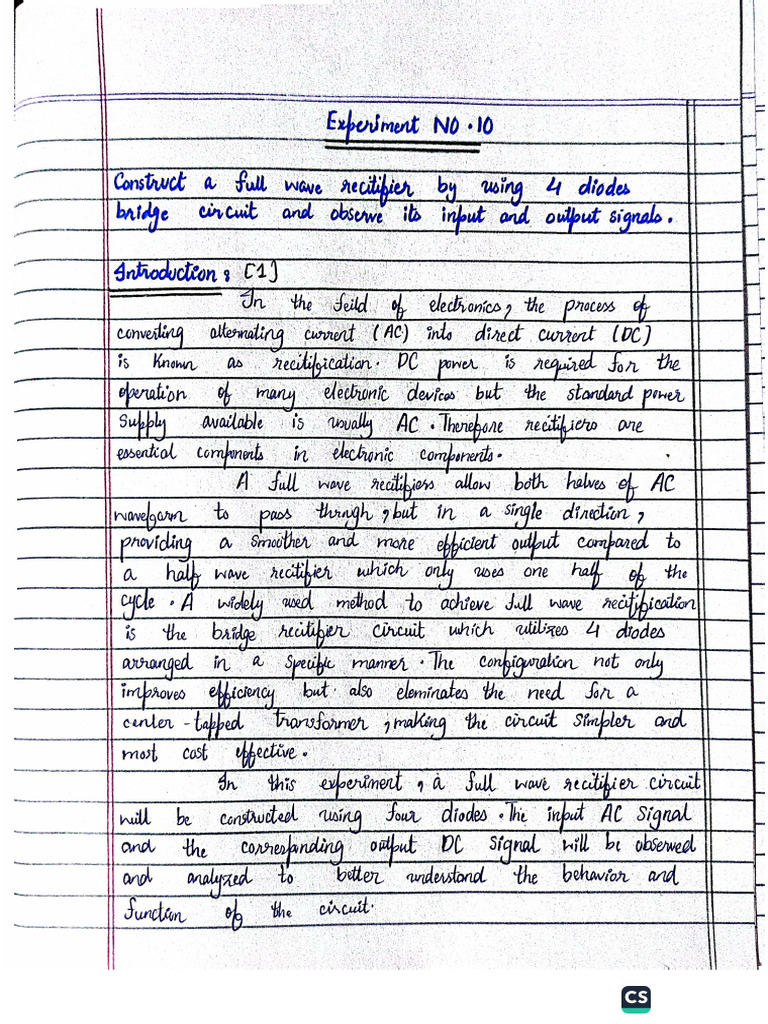 Experiment NO.10
Construct a full wave recitifier by using 4 diodes
bridge circuit and observe its input and output signals.
Introduction: [1]
In the feild of electronics, the process of
converting alternating current (AC) into direct current (DC)
is known as recitification. DC power is required for the
operation of many electronic devices but the standard power
supply available is usually AC. Therefore recitifiers are
essential components in electronic components.
A full wave recitifiers allow both halves of AC
waveform to pass through, but in a single direction,
providing a smoother and more efficient output compared to
a half wave recitifier which only uses one half of the
cycle. A widely used method to achieve full wave recitification
is the bridge recitifier circuit which utilizes 4 diodes
arranged in a specific manner. The configuration not only
improves efficiency but also eleminates the need for a
center-tapped transformer, making the circuit simpler and
most cost effective.
In this experiment, a full wave recitifier circuit
will be constructed using four diodes. The input AC signal
and the corresponding output DC signal will be observed
and analyzed to better understand the behavior and
function of the circuit.
CS